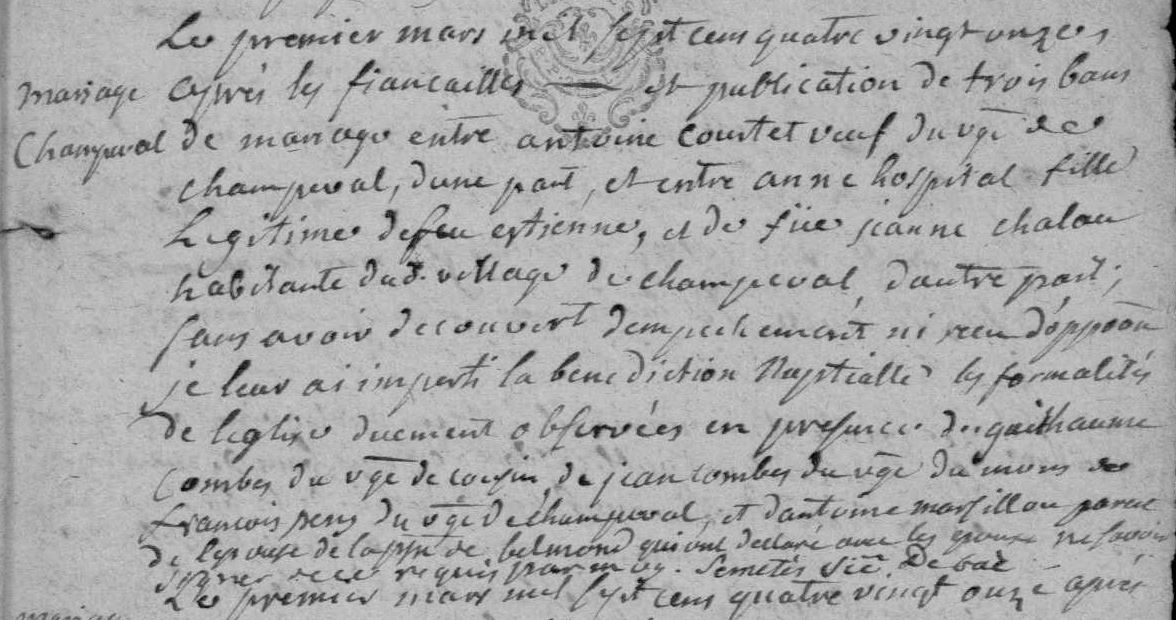 Le premier mars mil sept cens quatre vingt onze
mariage après les fiancailles et publication de trois bans
Champeval de mariage entre antoine Courtet veuf du vge de
champeval, dune part, et entre anne hospital fille
legitime defeu estienne, et de füe jeanne chalau
habitante dud. village de champeval, dautre part,
sans avoir decouvert dempechement ni reçu d'oppoon
je leur ai imparti la benediction Nuptialle les formalités
de leglise duement observées en presence de guilhaume
Combes du vge de de jean combes du vge du mons de
francois pens du vge de champeval, et dantoine marsillou parent
de lepouse de la ppn de belmond qui ont declaré avec les epoux ne savoir
signer de ce requis par moy. vic. De
Le premier mars mil sept cens quatre vingt onze après
mariage